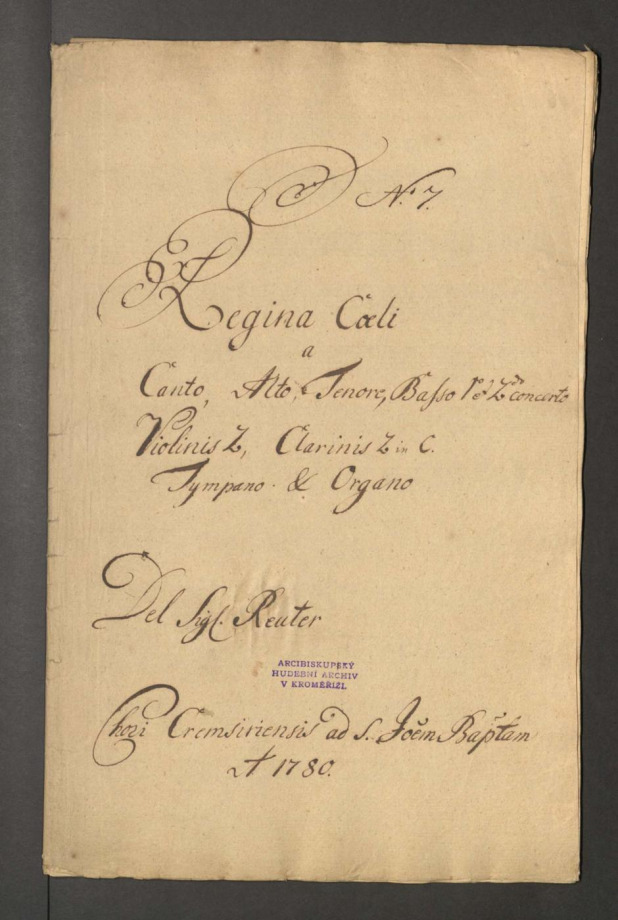 N.º 7.
Regina Cœli
a
Canto, Alto, Tenore, Basso 1º è 2dº concerto
Violinis 2, Clarinis 2 in C.
Tympano & Organo
Del Sig. Reuter
ARCIBISKUPSKÝ
HUDEBNÍ ARCHIV
V KROMĚŘÍŽI.
Chori Cremsiriensis ad S. Joēm Bapt̄am
A 1780.